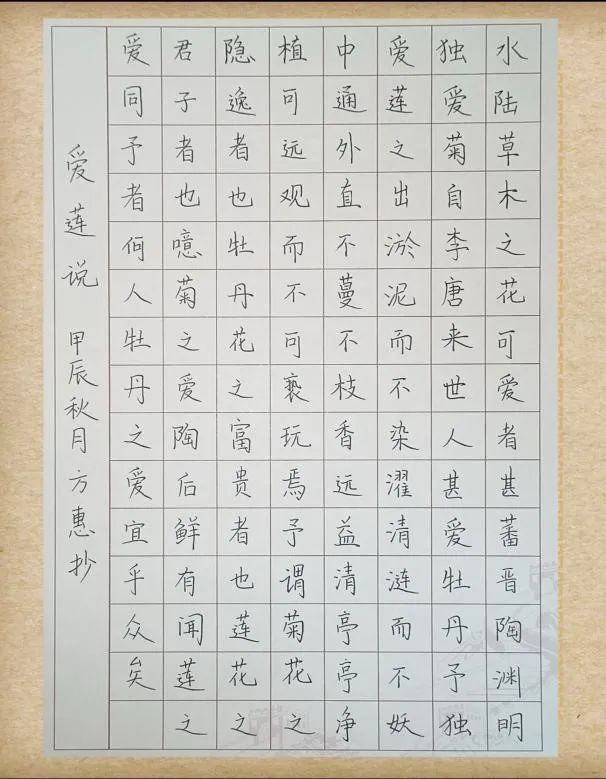 水陆草木之花可爱者甚蕃晋陶渊明
独爱菊自李唐来世人甚爱牡丹予独
爱莲之出淤泥而不染濯清涟而不妖
中通外直不蔓不枝香远益清亭亭净
植可远观而不可亵玩焉予谓菊花之
隐逸者也牡丹花之富贵者也莲花之
君子者也噫菊之爱陶后鲜有闻莲之
爱同予者何人牡丹之爱宜乎众矣
爱莲说 甲辰秋月方惠抄